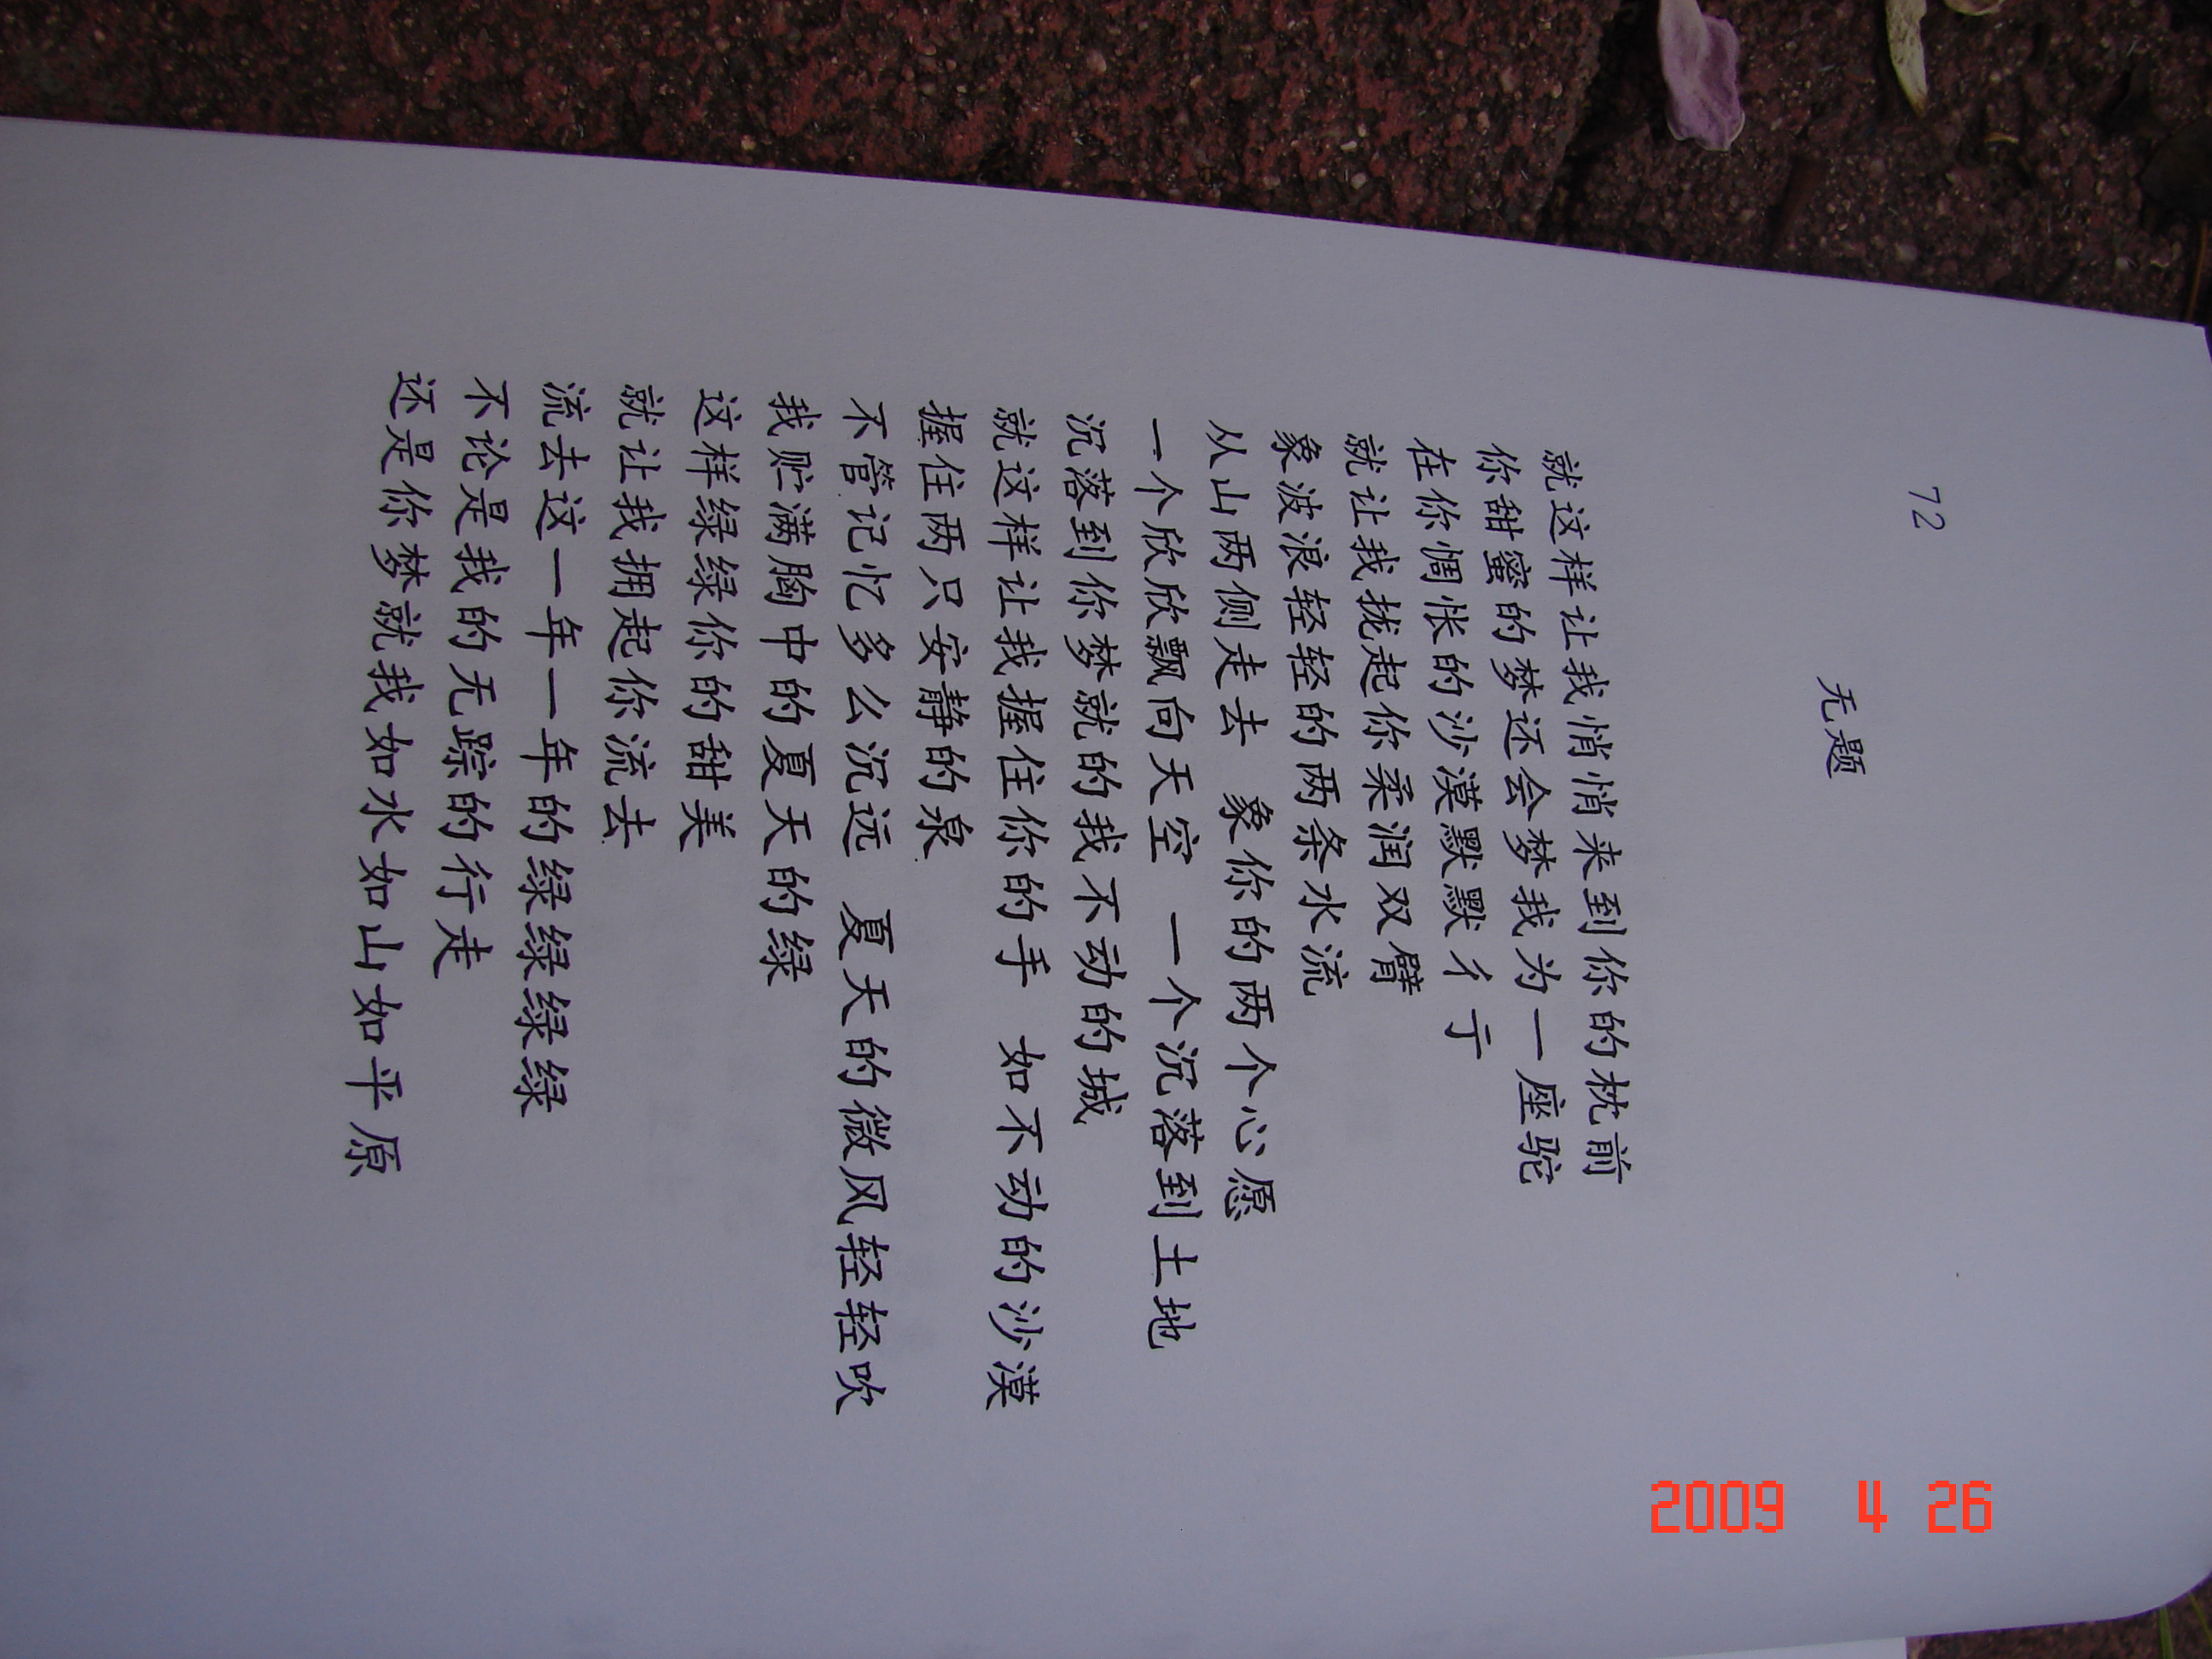 72
无题
就这样让我悄悄来到你的枕前
你甜蜜的梦还会梦我为一座驼
在你惆怅的沙漠默默彳亍
就让我拢起你柔润双臂
象波浪轻轻的两条水流
从山两侧走去 象你的两个心愿
一个欣欣飘向天空 一个沉落到土地
沉落到你梦就的我不动的城
就这样让我握住你的手 如不动的沙漠
握住两只安静的泉
不管记忆多么沉远 夏天的微风轻轻吹
我贮满胸中的夏天的绿
这样绿绿你的甜美
就让我拥起你流去
流去这一年一年的绿绿绿绿
不论是我的无踪的行走
还是你梦就我如水如山如平原
2009 4 26